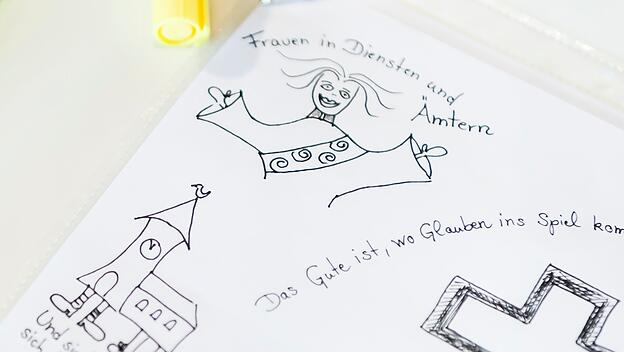 Frauen in Diensten und
Ämtern
Das Gute ist, wo Glauben ins Spiel kom
Und si
sich